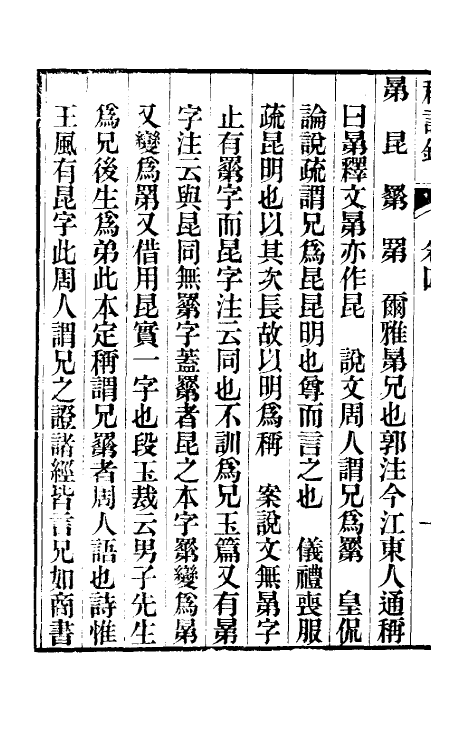 稱謂錄 卷四 一
晜 昆 𥊽 罤 爾雅晜兄也郭注今江東人通稱
曰晜釋文晜亦作昆 說文周人謂兄爲𥊽 皇侃
論說疏謂兄爲昆昆明也尊而言之也 儀禮喪服
疏昆明也以其次長故以明爲稱 案說文無晜字
止有𥊽字而昆字注云同也不訓爲兄玉篇又有晜
字注云與昆同無𥊽字蓋𥊽者昆之本字𥊽變爲晜
又變爲罤又借用昆實一字也段玉裁云男子先生
爲兄後生爲弟此本定稱謂兄𥊽者周人語也詩惟
王風有昆字此周人謂兄之證諸經皆言兄如商書